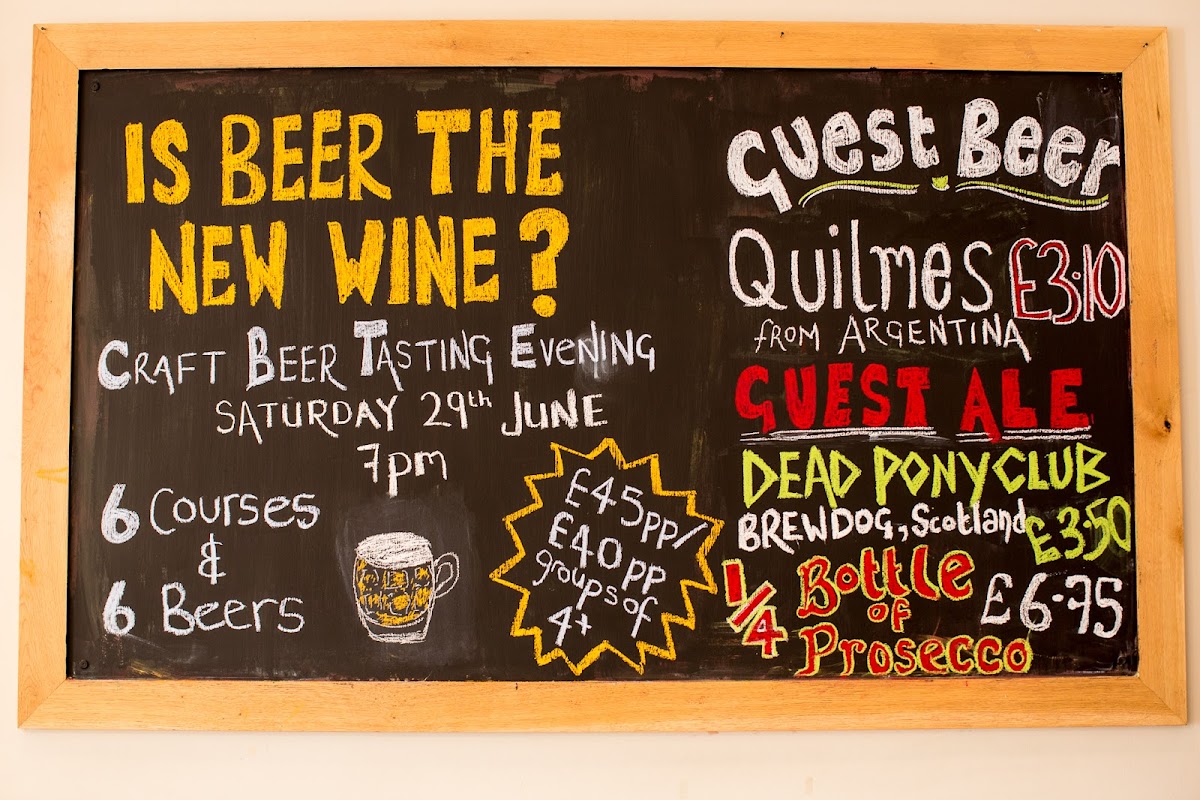 IS BEER THE
NEW WINE?
CRAFT BEER TASTING EVENING
SATURDAY 29th JUNE
7pm
6 Courses
&
6 Beers
£45pp/
£40pp
groups of
4+
Guest Beer
Quilmes £3.10
from ARGENTINA
GUEST ALE
DEAD PONY CLUB
BREWDOG, Scotland £3.50
1/4 Bottle
of
Prosecco £6.75